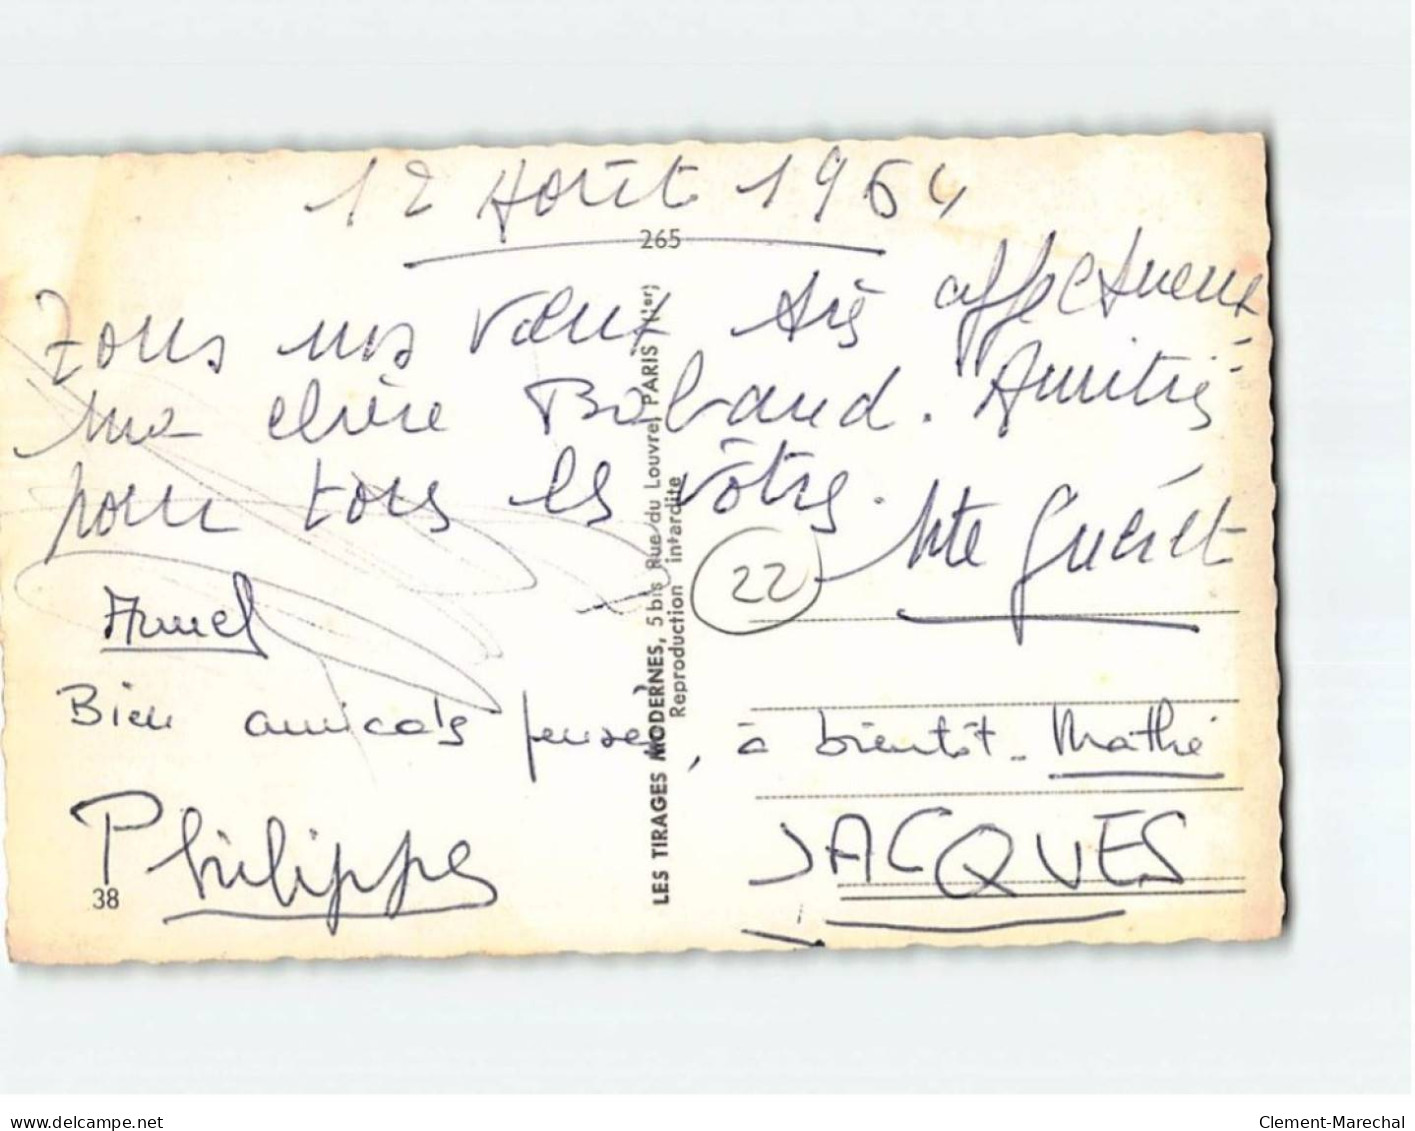 12 Août 1964
265
Tous nos vœux très affectueux
ma chère Baband. Amitiés
pour tous les vôtres.
Mte Guéret
22
Armel
Bien amicals pensées, à bientôt - Mathé
Philippe
JACQUES
38
LES TIRAGES MODERNES, 5 bis Rue du Louvre, PARIS (1er)
Reproduction interdite
delcampe.net
Clement-Marechal